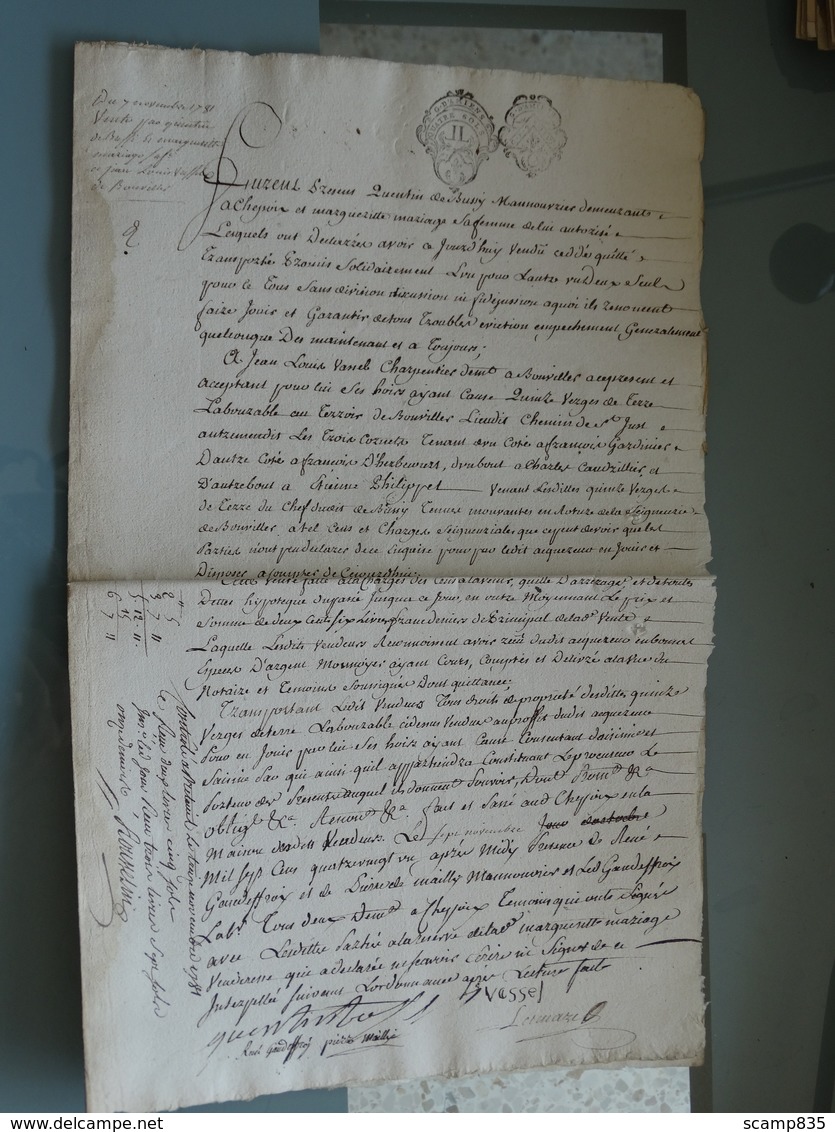 Du 7 novembre 1781
Vente par quentin
de Bussi et marguerite
mariage sa fe
a jean Louis Vassel
de Bonviller
G. D'AMIENS
QUATRE SOLS
II
Furent Presens Quentin de Bussy Mannouvrier demeurant
a Chepoix et margueritte mariage sa femme de lui autorisé
Lesquels ont Declarrés avoir ce Jourd'huy Vendû ceddé quitté
Transporté Promis Solidairement L'un pour L'autre un Deux Seul
pour le Tous Sans division discussion ni fidejussion a quoi ils renoncent
faire Jouir et Garantir de tous Troubles eviction empechement Generalement
quelconque Des maintenant et a Toujours;
A Jean Louis Vassel Charpentier demt a Bonviller ace present et
acceptant pour lui Ses hoirs ayant Cause Quinze Verges de Terre
Labourable au Terroir de Bonviller Lieudit Chemin de St Just
autrement dit Les Trois Cornets Tenant d'un Coté a françois Gardinier
D'autre Coté a francois D'herbecourt, d'un bout a Charles Caudrillier et
D'autre bout a Etienne Philippet Venant Lesdittes quinze Verges
de Terre du Chef dudit de Bussy Tenues mouvantes en Roture de la Seigneurie
de Bonviller, a tel Cens et Charges Seigneuriales que ce peut devoir que les
Parties n'ont pu declarer de ce Enquise pour par ledit acquereur en Jouir et
Disposer a compter de Cejourd'hui;
Cette Vente faite a la Charges des Cens a l'avenir, quitte D'arrerages et de toutes
Dettes hypoteque du passé jusqu'a ce jour, en outre Moyennant Le prix et
Somme de deux Cent Six Livres francs deniers de Principal de lade Vente
Laquelle Lesdits Vendeurs Reconnoissent avoir reçu dudit acquereur en bonnes
Especes D'argent Monnoyés ayant Cours, Comptés et Delivré a la vue du
Notaire et Temoins Soussignés Dont quittance;
Transportant Lesdit Vendeurs Tous droits de propriété desdittes quinze
Verges de terre Labourable cidessus Vendue au proffit dudit acquereur
Pour en Jouir par lui Ses hoirs ayant Cause Consentant dessaisine et
Saisine Par qui ainsi qu'il appartiendra Constituant Le procureur Le
Porteur des Presentes auquel ils donnent Pouvoir, Dont Promt &a
obligt &a Renonct &a fait et Passé aud Chepoix en la
Maison desdits Vendeurs Le sept novembre
Mil Sept Cens quatre vingt un après Midy Presence de René
Gaudeffroix et de Pierre de mailly Mannouvrier et Led Gaudeffroix
Labr Tous deux Demt a Chepoix Temoins qui ont Signée
avec Lesdittes Parties a la reserve de lade margueritte mariage
Venderesse qui a declarée ne sçavoir Ecrire ni Signer de ce
Interpellé Suivant Lordonnance après Lecture faite
Vassel
René gaudeffroy pierre mailly
Lemaire
2 tt 5
3 7 11
5 12 11
15
6 7 11
Controlé a Breteuil le onze novembre 1781